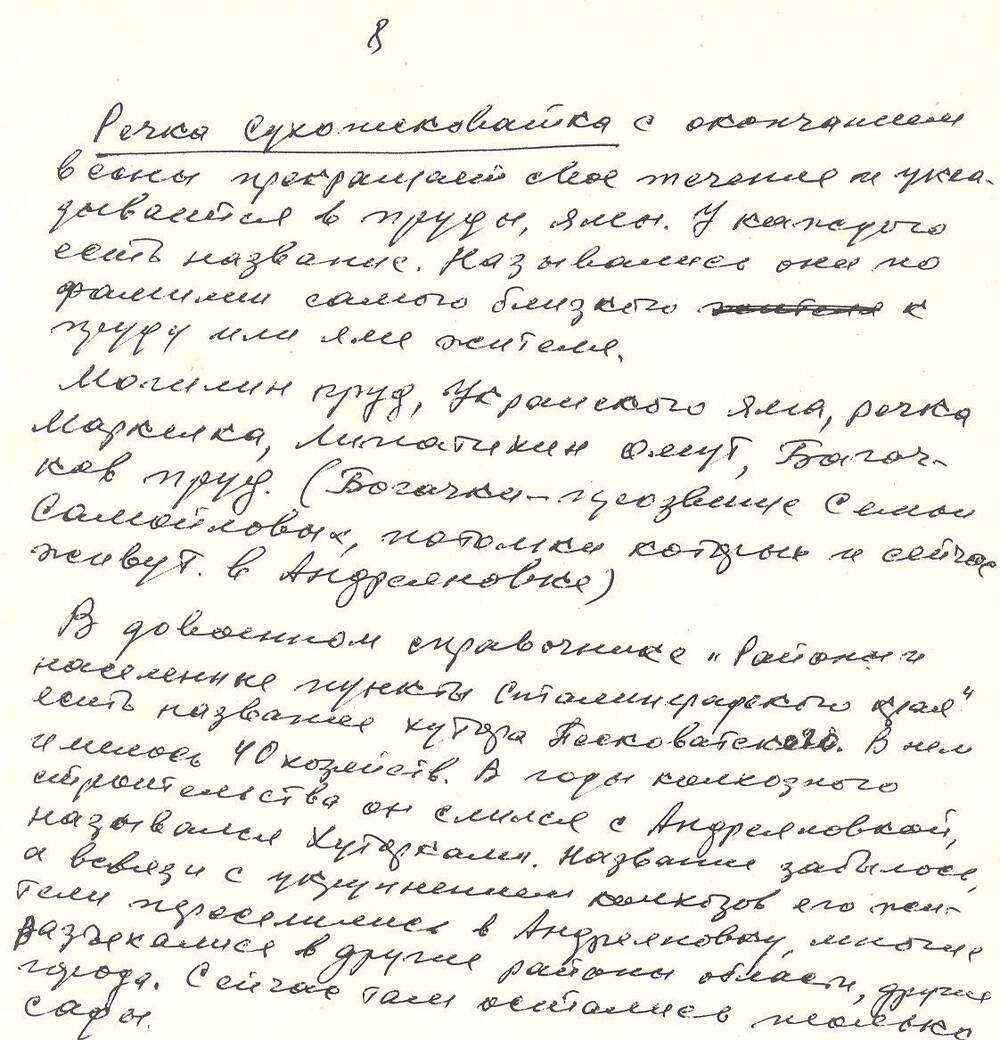 8
Речка Сухопесковатка с окончанием
весны прекращает свое течение и укла-
дывается в пруды, ямы. У каждого
есть название. Назывались они по
фамилии самого близкого жителя к
пруду или яме жителя.
Могилин пруд, Украинского яма, речка
Маркелка, Липатихин омут, Багач-
ков пруд. (Богачки - прозвище семьи
Самойловых, потомки которых и сейчас
живут. в Андреяновке)
В довоенном справочнике „Районы и
населенные пункты Сталинградского края"
есть название хутора Песковатского. В нем
имелось 40 хозяйств. В годы колхозного
строительства он слился с Андреяновкой,
назывался Хуторками. Название забылось,
а всвязи с укрупнением колхозов его жи-
тели переселились в Андреяновку, многие
разъехались в другие районы области, другие
города. Сейчас там остались только
сады.